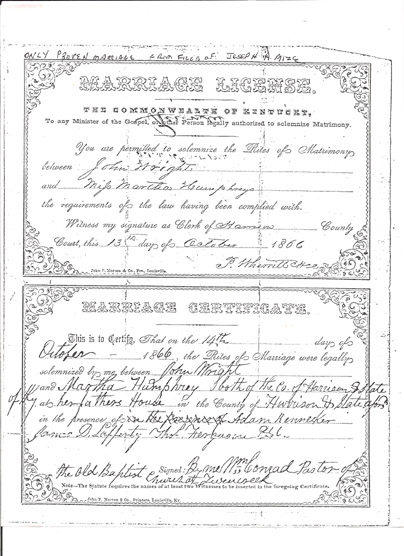 ONLY PROVEN MARRIAGE FROM FILES OF JOSEPH H.
MARRIAGE LICENSE.
THE COMMONWEALTH OF KENTUCKY,
To any Minister of the Gospel, or other Person legally authorized to solemnize Matrimony.
You are permitted to solemnize the Rites of Matrimony
between John Wright
and Miss Martha Humphreys
the requirements of the law having been complied with.
Witness my signature as Clerk of Harrison County
Court, this 13th day of October 1866
P. CHCC
John P. Morton & Co. Pro, Louisville.
MARRIAGE CERTIFICATE.
This is to Certify, That on the 14th day of
October 1866 the Rites of Marriage were legally
solemnized by me between John Wright
and Martha Humphrey both of the Co. of Harrison & State
of Ky
at her fathers House in the County of Harrison & State afors
in the presence of in the presence of Adam Renneker
James D. Lafferty Thos Ferguson &c.
Signed: By me Wm Conrad Pastor of
the Old Baptist Church at Twincreek
Note.—The Statute requires the names of at least two Witnesses to be inserted in the foregoing Certificate.
John P. Morton & Co., Printers, Louisville, Ky.